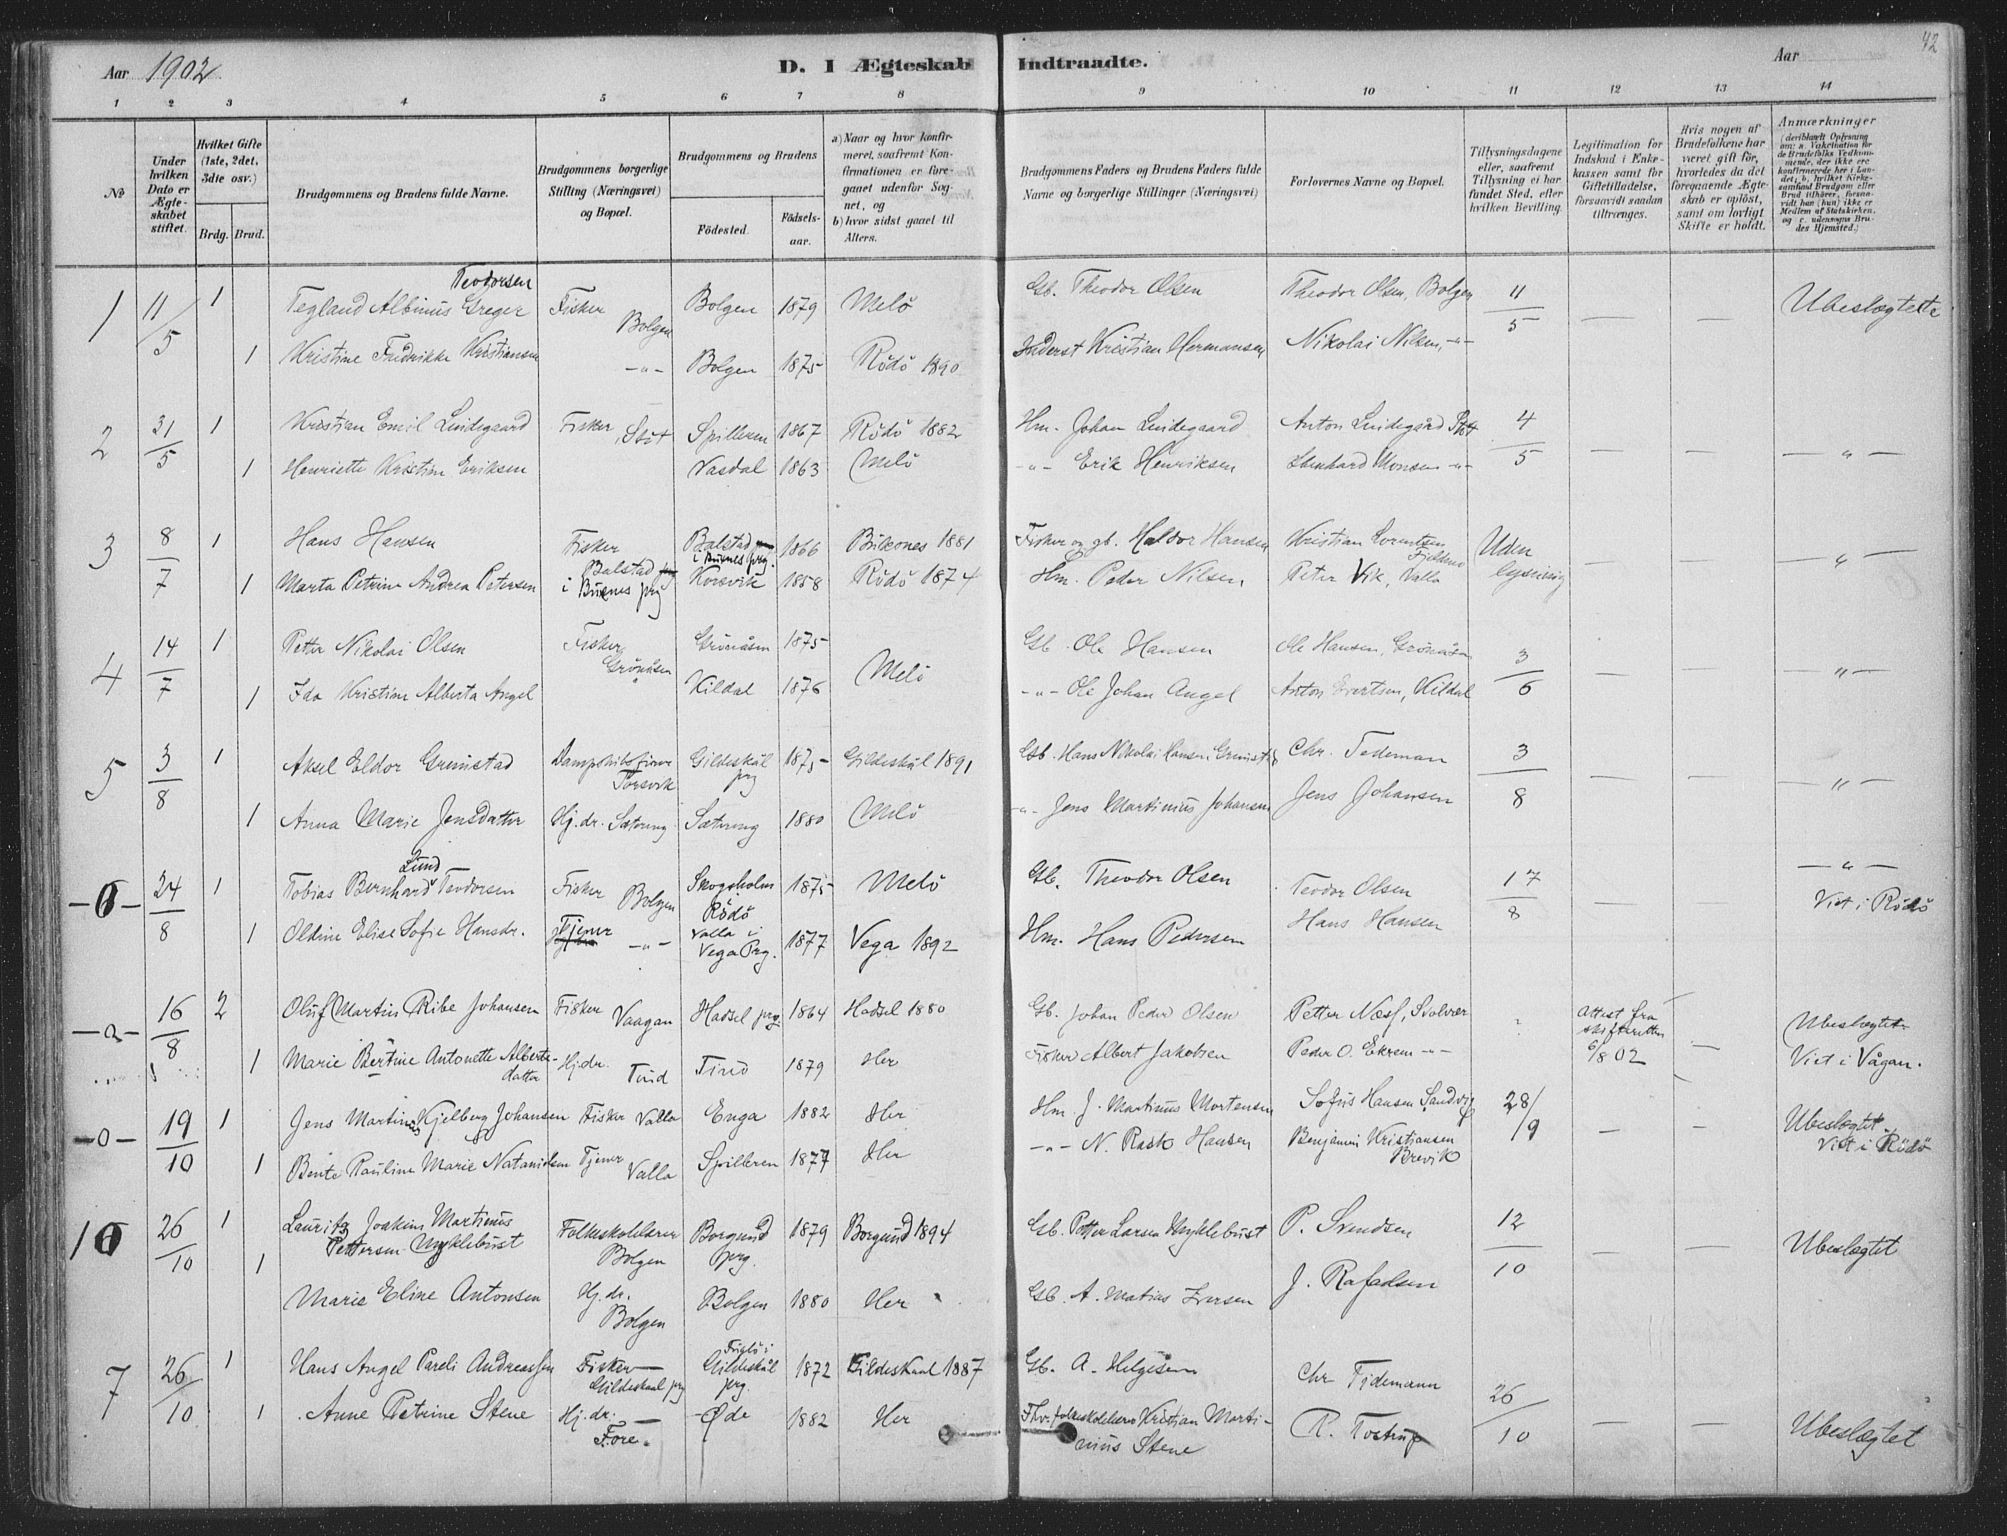 Aar 1902
D. I Ægteskab Indtraadte.
Aar
42
1 2 3 4 5 6 7 8 9 10 11 12 13 14
№
Under hvilken Dato er Ægteskabet stiftet.
Hvilket Gifte (1ste, 2det, 3die osv.)
Brdg. Brud.
Brudgommens og Brudens fulde Navne.
Brudgommens borgerlige Stilling (Næringsvei) og Bopæl.
Brudgommens og Brudens
Födested. Födselsaar.
a) Naar og hvor konfirmeret, saafremt Konfirmationen er foregaaet udenfor Sognet, og
b) hvor sidst gaaet til Alters.
Brudgommens Faders og Brudens Faders fulde Navne og borgerlige Stillinger (Næringsvei)
Forlovernes Navne og Bopæl.
Tillysningsdagene eller, saafremt Tillysning ei har fundet Sted, efter hvilken Bevilling.
Legitimation for Indskud i Enkekassen samt for Giftetilladelse, forsaavidt saadan tiltrænges.
Hvis nogen af Brudefolkene har været gift för, hvorledes da det foregaaende Ægteskab er oplöst, samt om lovligt Skifte er holdt.
Anmærkninger
(deriblandt Oplysning om: a. Vakcination for de Brudefolks Vedkommende, der ikke ere konfirmerede her i Landet; b. hvilket Kirkesamfund Brudgom eller Brud tilhörer, forsaavidt han (hun) ikke er Medlem af Statskirken, og c. udensogns Brudes Hjemsted.)
Teodorsen
1 11/5 1 Tegland Albinus Greger Fisker Bolgen Bolgen 1879 Melö Gb. Theodor Olsen Theodor Olsen, Bolgen 11/5 — — Ubeslægtede
1 Kristine Fredrikke Kristiansen -"- Bolgen 1875 Rödö 1890 Inderst Kristian Hermansen Nikolai Nilsen, -"-
2 31/5 1 Kristian Emil Lindegaard Fisker, Stöt Spilleren 1867 Rödö 1882 Hm. Johan Lindegaard Anton Lindegård Stöt 4/5 — — — " —
1 Henriette Kristine Eriksen Vasdal 1863 Melö -"- Erik Henriksen Ebenhard Monsen -"-
3 8/7 1 Hans Hansen Fisker Balstad i Buknes prg Balstad i Buknes prg. 1866 Buknes 1881 Fisker og gb. Haldor Hansen Kristian Lorentzen Uden lysning — — — " —
1 Marta Petrine Andrea Petersen Korsvik 1858 Rödö 1874 Hm. Peder Nilsen Peter Vik, Valla
4 14/7 1 Petter Nikolai Olsen Fisker Grönåsen Grönåsen 1875 Melö Gb. Ole Hansen Ole Hansen, Grönåsen 3/6 — — — " —
1 Ida Kristine Alberta Angel Kildal 1876 -"- Ole Johan Angel Anton Evertsen, Kildal
5 3/8 1 Aksel Eldor Grimstad Torsvik Gildeskål prg 1875 Gildeskål 1891 Gb. Hans Nikolai Hansen Grimstad Chr. Tedeman 3/8 — — — " —
1 Anna Marie Jensdatter Hj. dr. Sætvung Sætvung 1880 Melö -"- Jens Martinius Johansen Jens Johansen
Lund
-6- 24/8 1 Tobias Bernhard Teodorsen Fisker Bolgen Skogsholm Rödö 1875 Melö Gb. Theodor Olsen Teodor Olsen 17/8 — — " — Viet i Rödö
1 Oldine Elise Sofie Hansdr. Tjener -"- Valla i Vega Prg. 1877 Vega 1892 Hm. Hans Pedersen Hans Hansen
-0- 16/8 2 Oluf Martin Ribe Johansen Fisker Vaagan Hadsel prg 1864 Hadsel 1880 Gb. Johan Peder Olsen Petter Næss, Svolvær Attest fra skifteretten 6/8 02 — Ubeslægtet Viet i Vågan.
1 Marie Bertine Antonette Alberts-datter Hj. dr. Tind Tind 1879 Her Fisker Albert Jakobsen Peder O. Ekrem -"-
-0- 19/10 1 Jens Martinus Kjelberg Johansen Fisker Valla Enga 1882 Her Hm. J. Martinus Mortensen Sofus Hansen Sandvig 28/9 — — Ubeslægtet. Viet i Rödö
1 Bente Pauline Marie Natanielsen Tjener Valla Spilleren 1877 Her -"- N. Rask Hansen Benjamin Kristjansen Brevik
16 26/10 1 Lauritz Joakim Martinus Pettersen Myklebust Folkeskolelærer Bolgen Borgund prg. 1879 Borgund 1894 Gb. Petter Larsen Myklebust P. Svendsen 12/10 — — Ubeslægtet
1 Marie Eline Antonsen Hj. dr. Bolgen Bolgen 1880 Her Gb. A. Matias Iversen J. Rafaelsen
7 26/10 1 Hans Angel Pareli Andreassen Fisker Gildeskaal prg i Gildeskål prg. 1872 Gildeskaal 1887 Gb. A. Helgesen Chr Tidemann 26/10 — — Ubeslægtet
1 Anne Petrine Stene Hj. dr. Fore. Øde 1882 Her Fhv. folkeskolelærer Kristian Martinius Stene R. Tostrup